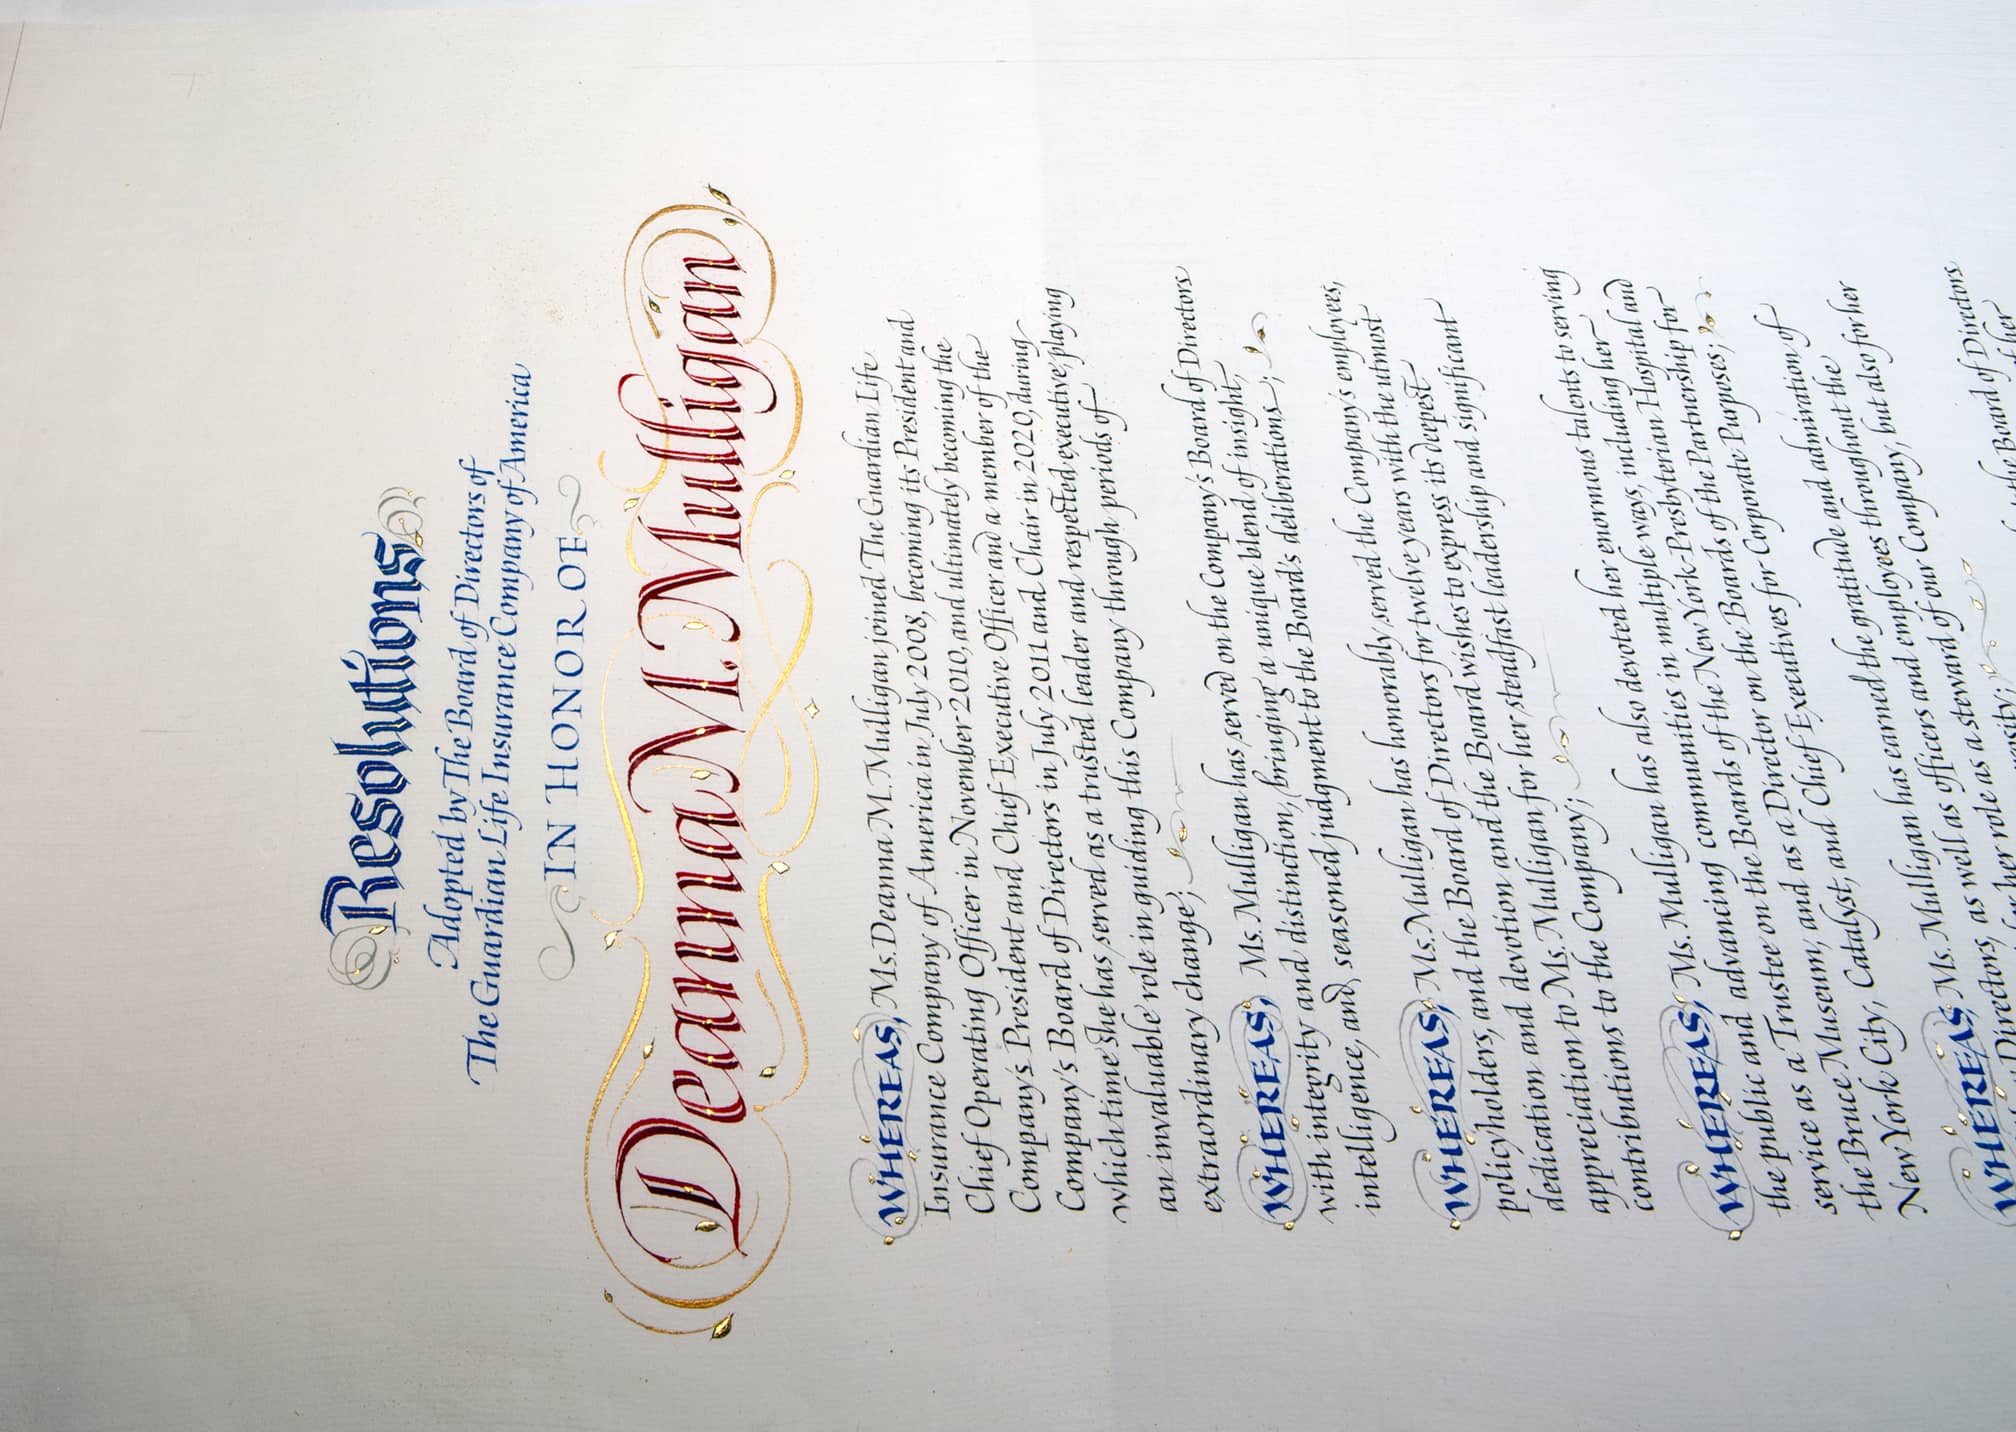 Resolutions
Adopted by The Board of Directors of
The Guardian Life Insurance Company of America
IN HONOR OF
Deanna M. Mulligan
WHEREAS, Ms. Deanna M. Mulligan joined The Guardian Life
Insurance Company of America in July 2008, becoming its President and
Chief Operating Officer in November 2010, and ultimately becoming the
Company's President and Chief Executive Officer and a member of the
Company's Board of Directors in July 2011 and Chair in 2020, during
which time she has served as a trusted leader and respected executive, playing
an invaluable role in guiding this Company through periods of
extraordinary change;
WHEREAS, Ms. Mulligan has served on the Company's Board of Directors
with integrity and distinction, bringing a unique blend of insight,
intelligence, and seasoned judgment to the Board's deliberations;
WHEREAS, Ms. Mulligan has honorably served the Company's employees,
policyholders, and the Board of Directors for twelve years with the utmost
dedication and devotion and the Board wishes to express its deepest
appreciation to Ms. Mulligan for her steadfast leadership and significant
contributions to the Company;
WHEREAS, Ms. Mulligan has also devoted her enormous talents to serving
the public and advancing communities in multiple ways, including her
service as a Trustee on the Boards of the New York-Presbyterian Hospital and
the Bruce Museum, and as a Director on the Boards of the Partnership for
New York City, Catalyst, and Chief Executives for Corporate Purposes;
WHEREAS, Ms. Mulligan has earned the gratitude and admiration of
Directors, as well as officers and employees throughout the
her role as a steward of our Company, but also for her
the Board of Directors